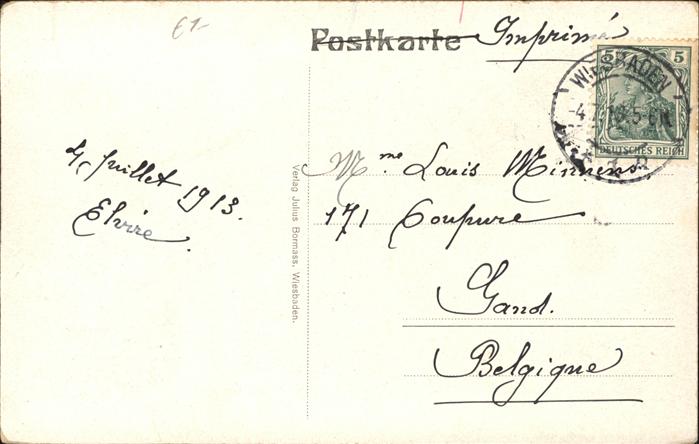 £1-
Postkarte Imprimé
5 5
WIESBADEN
DEUTSCHES REICH
4 Juillet 1913.
Elvire.
Verlag Julius Bormass, Wiesbaden.
Mme Louis Minnens
171 Coupure
Gand.
Belgique